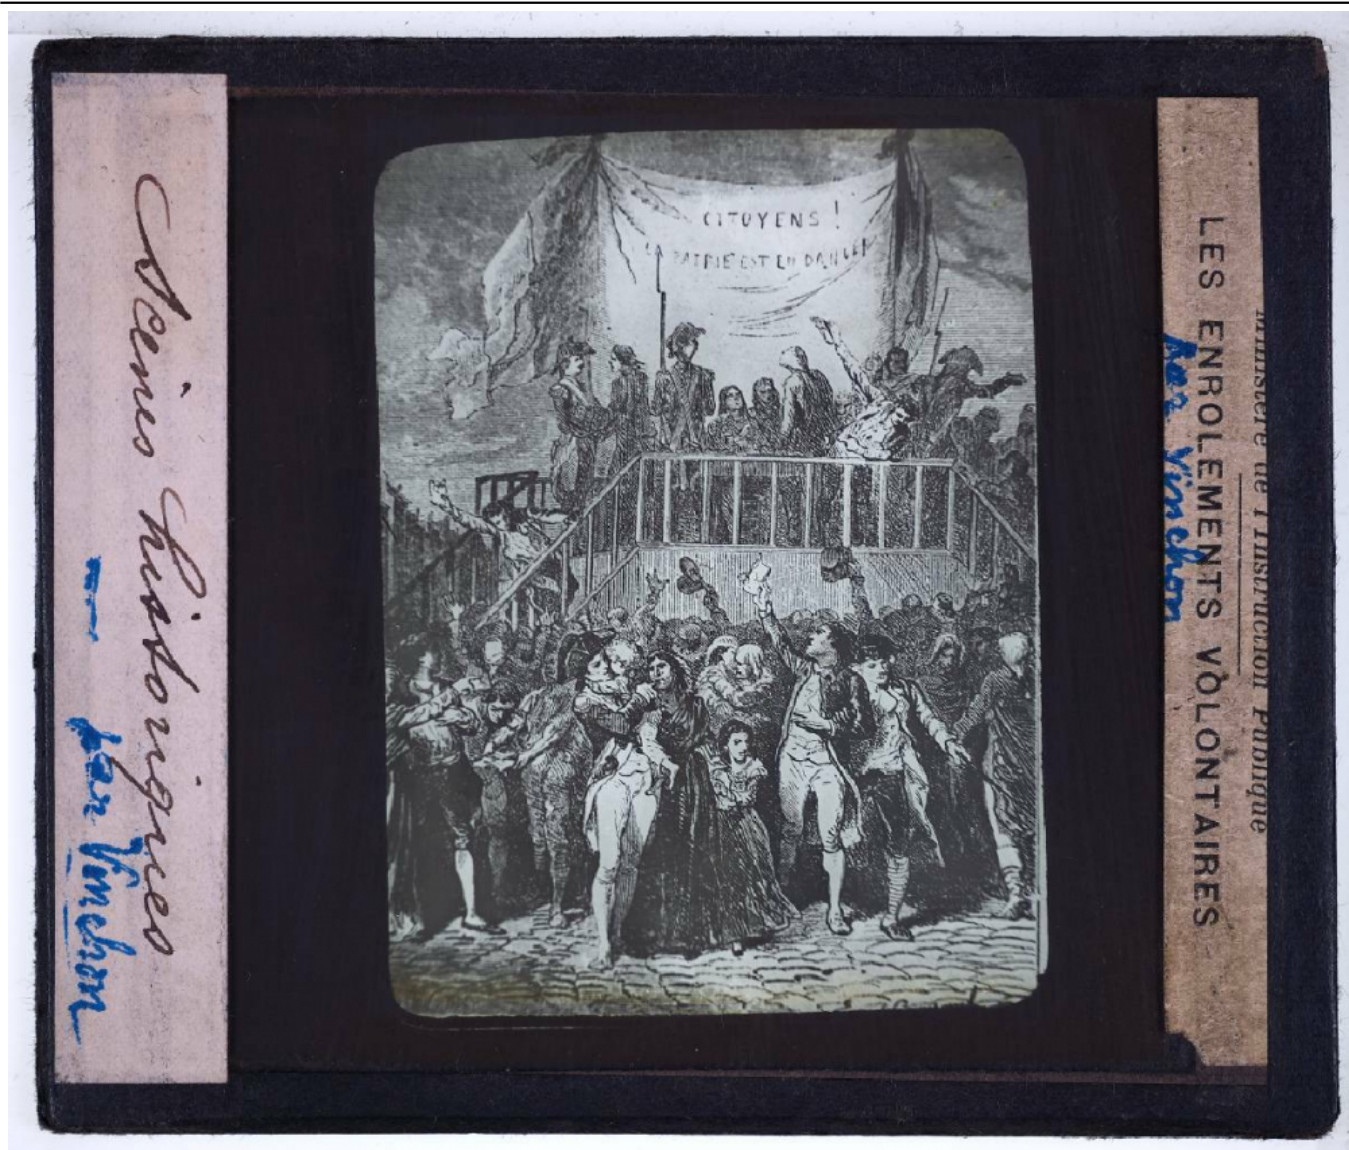 Scènes historiques
— par Vinchon
CITOYENS !
LA PATRIE EST EN DANGER
Ministère de l'Instruction Publique
LES ENROLEMENTS VOLONTAIRES
par Vinchon